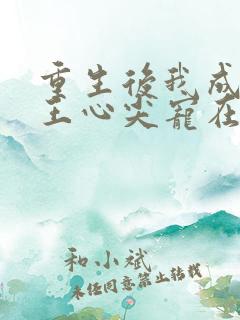 重生後我成
王心尖寵在
和小斌
未经同意禁止转载